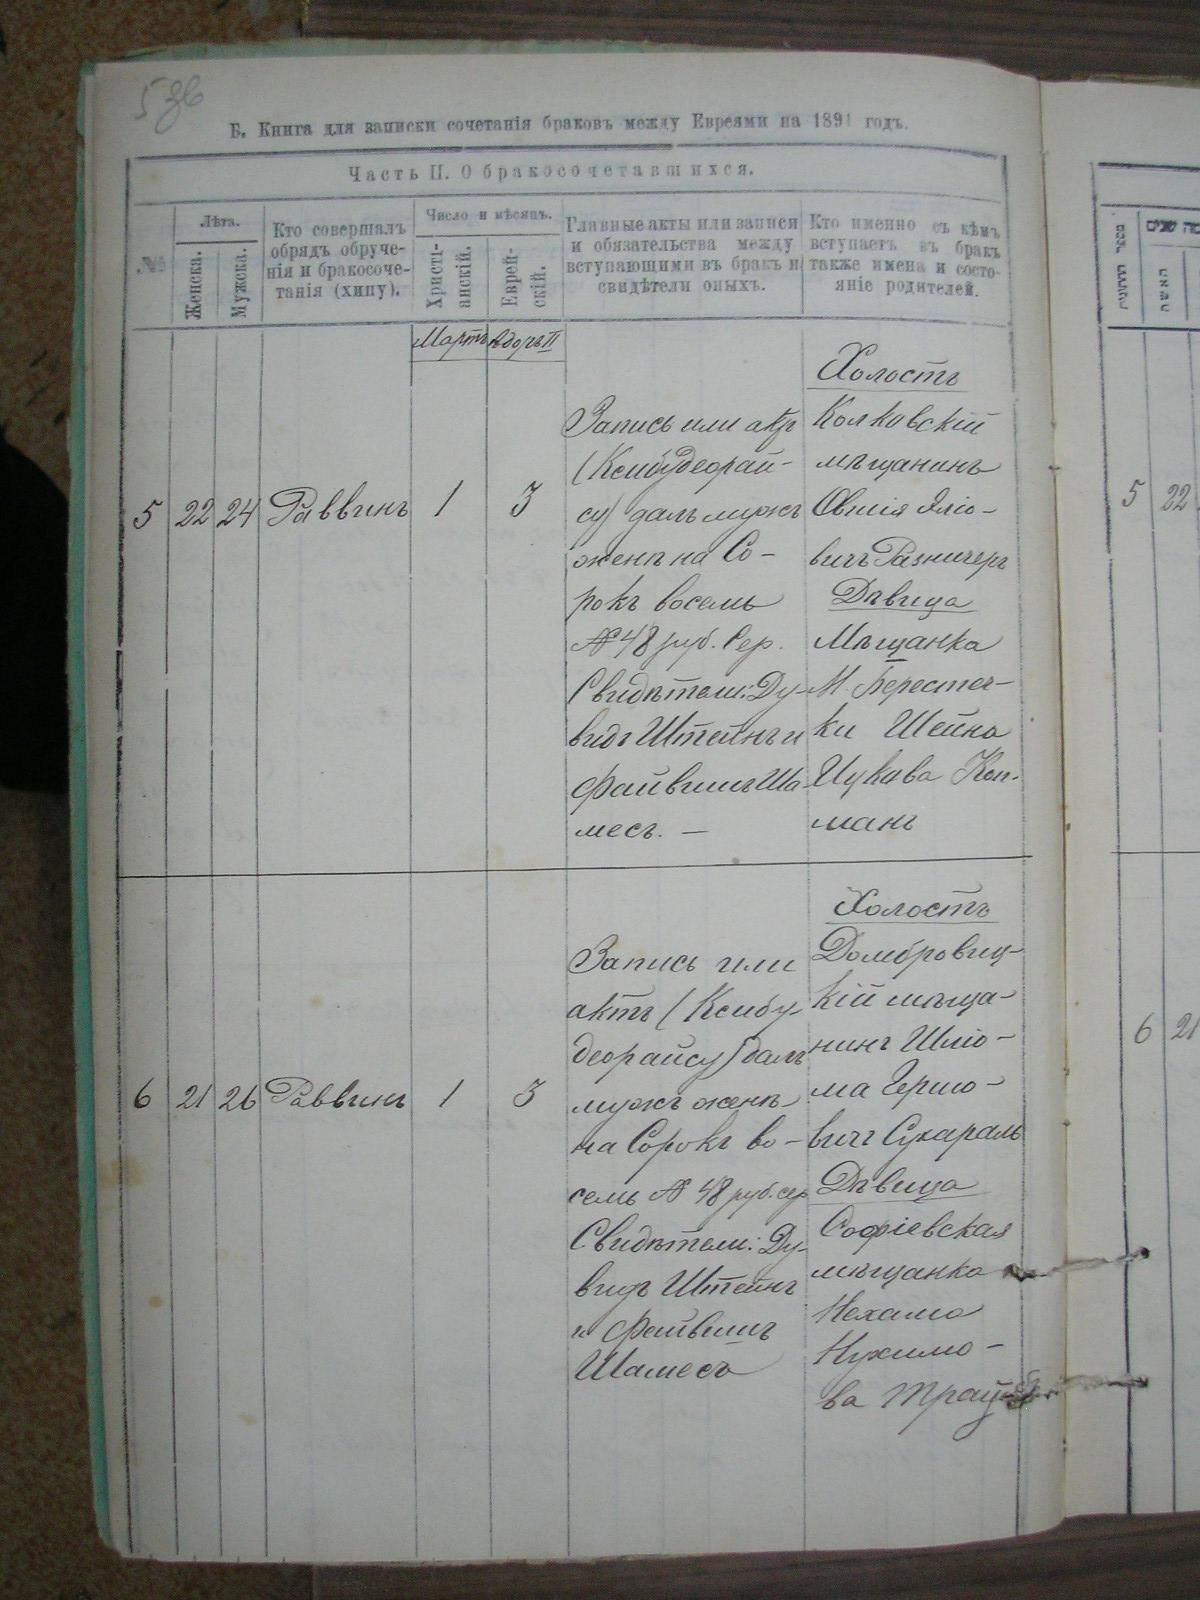 Б. Книга для записки сочетанія браковъ между Евреями на 1891 годъ.
Часть II. О бракосочетавшихся.
№
Лѣта.
Женска.
Мужска.
Кто совершалъ
обрядъ обруче-
нія и бракосоче-
танія (хипу).
Число и мѣсяцъ.
Христі-
анскій.
Еврей-
скій.
Главные акты или записи
и обязательства между
вступающими въ бракъ и
свидѣтели оныхъ.
Кто именно съ кѣмъ
вступаетъ въ бракъ
также имена и состо-
яніе родителей.
Мартъ
Адоръ II
5
22
24
Раввинъ
1
3
Запись или актъ
(Ксибудеорай-
су) далъ мужъ
женѣ на Со-
рокъ восемь
№ 48 руб. Сер.
Свидѣтели: Ду-
видъ Штейнъ и
Файвишъ Ша-
месъ. —
Холостъ
Колковскій
мѣщанинъ
Овшія
вичъ
Дѣвица
Мѣщанка
М. Берестеч-
ки Шейна
Ицкова
манъ
6
21
26
Раввинъ
1
3
Запись или
актъ (Ксибу-
деорайсу) далъ
мужъ женѣ
на Сорокъ во-
семь № 48 руб. сер
Свидѣтели: Ду-
видъ Штейнъ
и Файвишъ
Шамесъ
Холостъ
Домбровиц-
кій мѣща-
нинъ Шліо-
ма Гершо-
вичъ Сухараль
Дѣвица
Софіевская
мѣщанка
Нехама
Нухимо-
ва
5
22
6
21